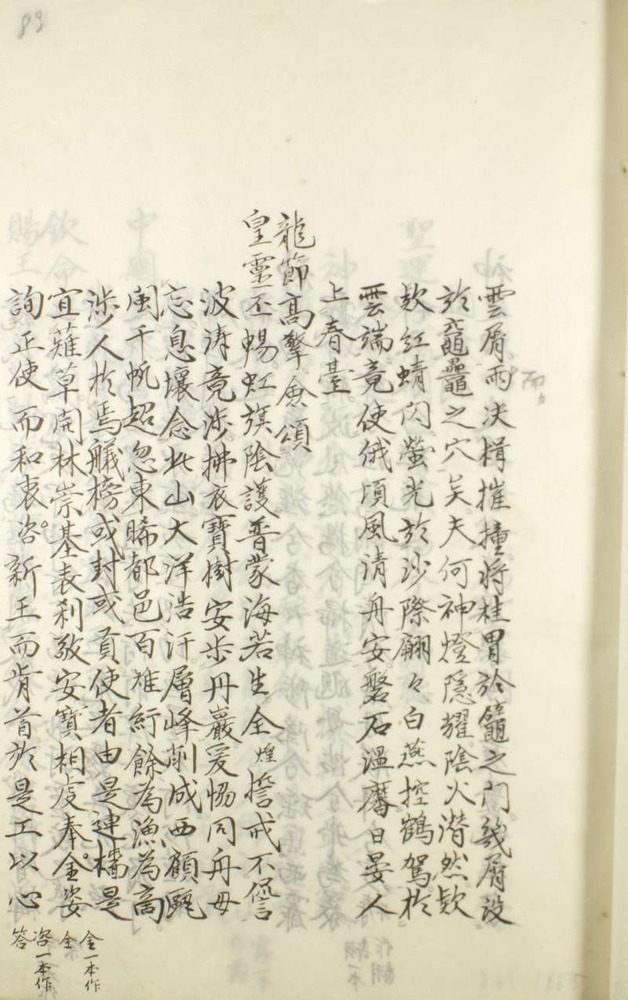 83
雲屑雨决楫摧撞將桂胃於鼊之門幾屑没
於黿鼉之穴矣夫何神燈隱耀陰火潛然欻
欻紅蜻閃螢光於沙際翩々白燕控鶴駕於
雲端竟使俄頃風清舟安磐石溫麐日晏人
上春臺
龍節高擎僉頌
皇靈丕暢虹旗陰護普蒙海若生全煌擔戒不僭
波濤竟涉拂衣寶樹安步丹巖爰恊同舟毋
忘息壤念此山大洋浩汗層峰削成西顧甌
閩千帆超忽東睎都邑百雉紆餘為漁為商
涉人於焉艤榜或封或貢使者由是建檣是
宜薙草開林崇基表刹敬安寶相虔奉金姿
詢正使而和衷咨新王而肯首於是工以心
金一本作
全
咨一本作
答